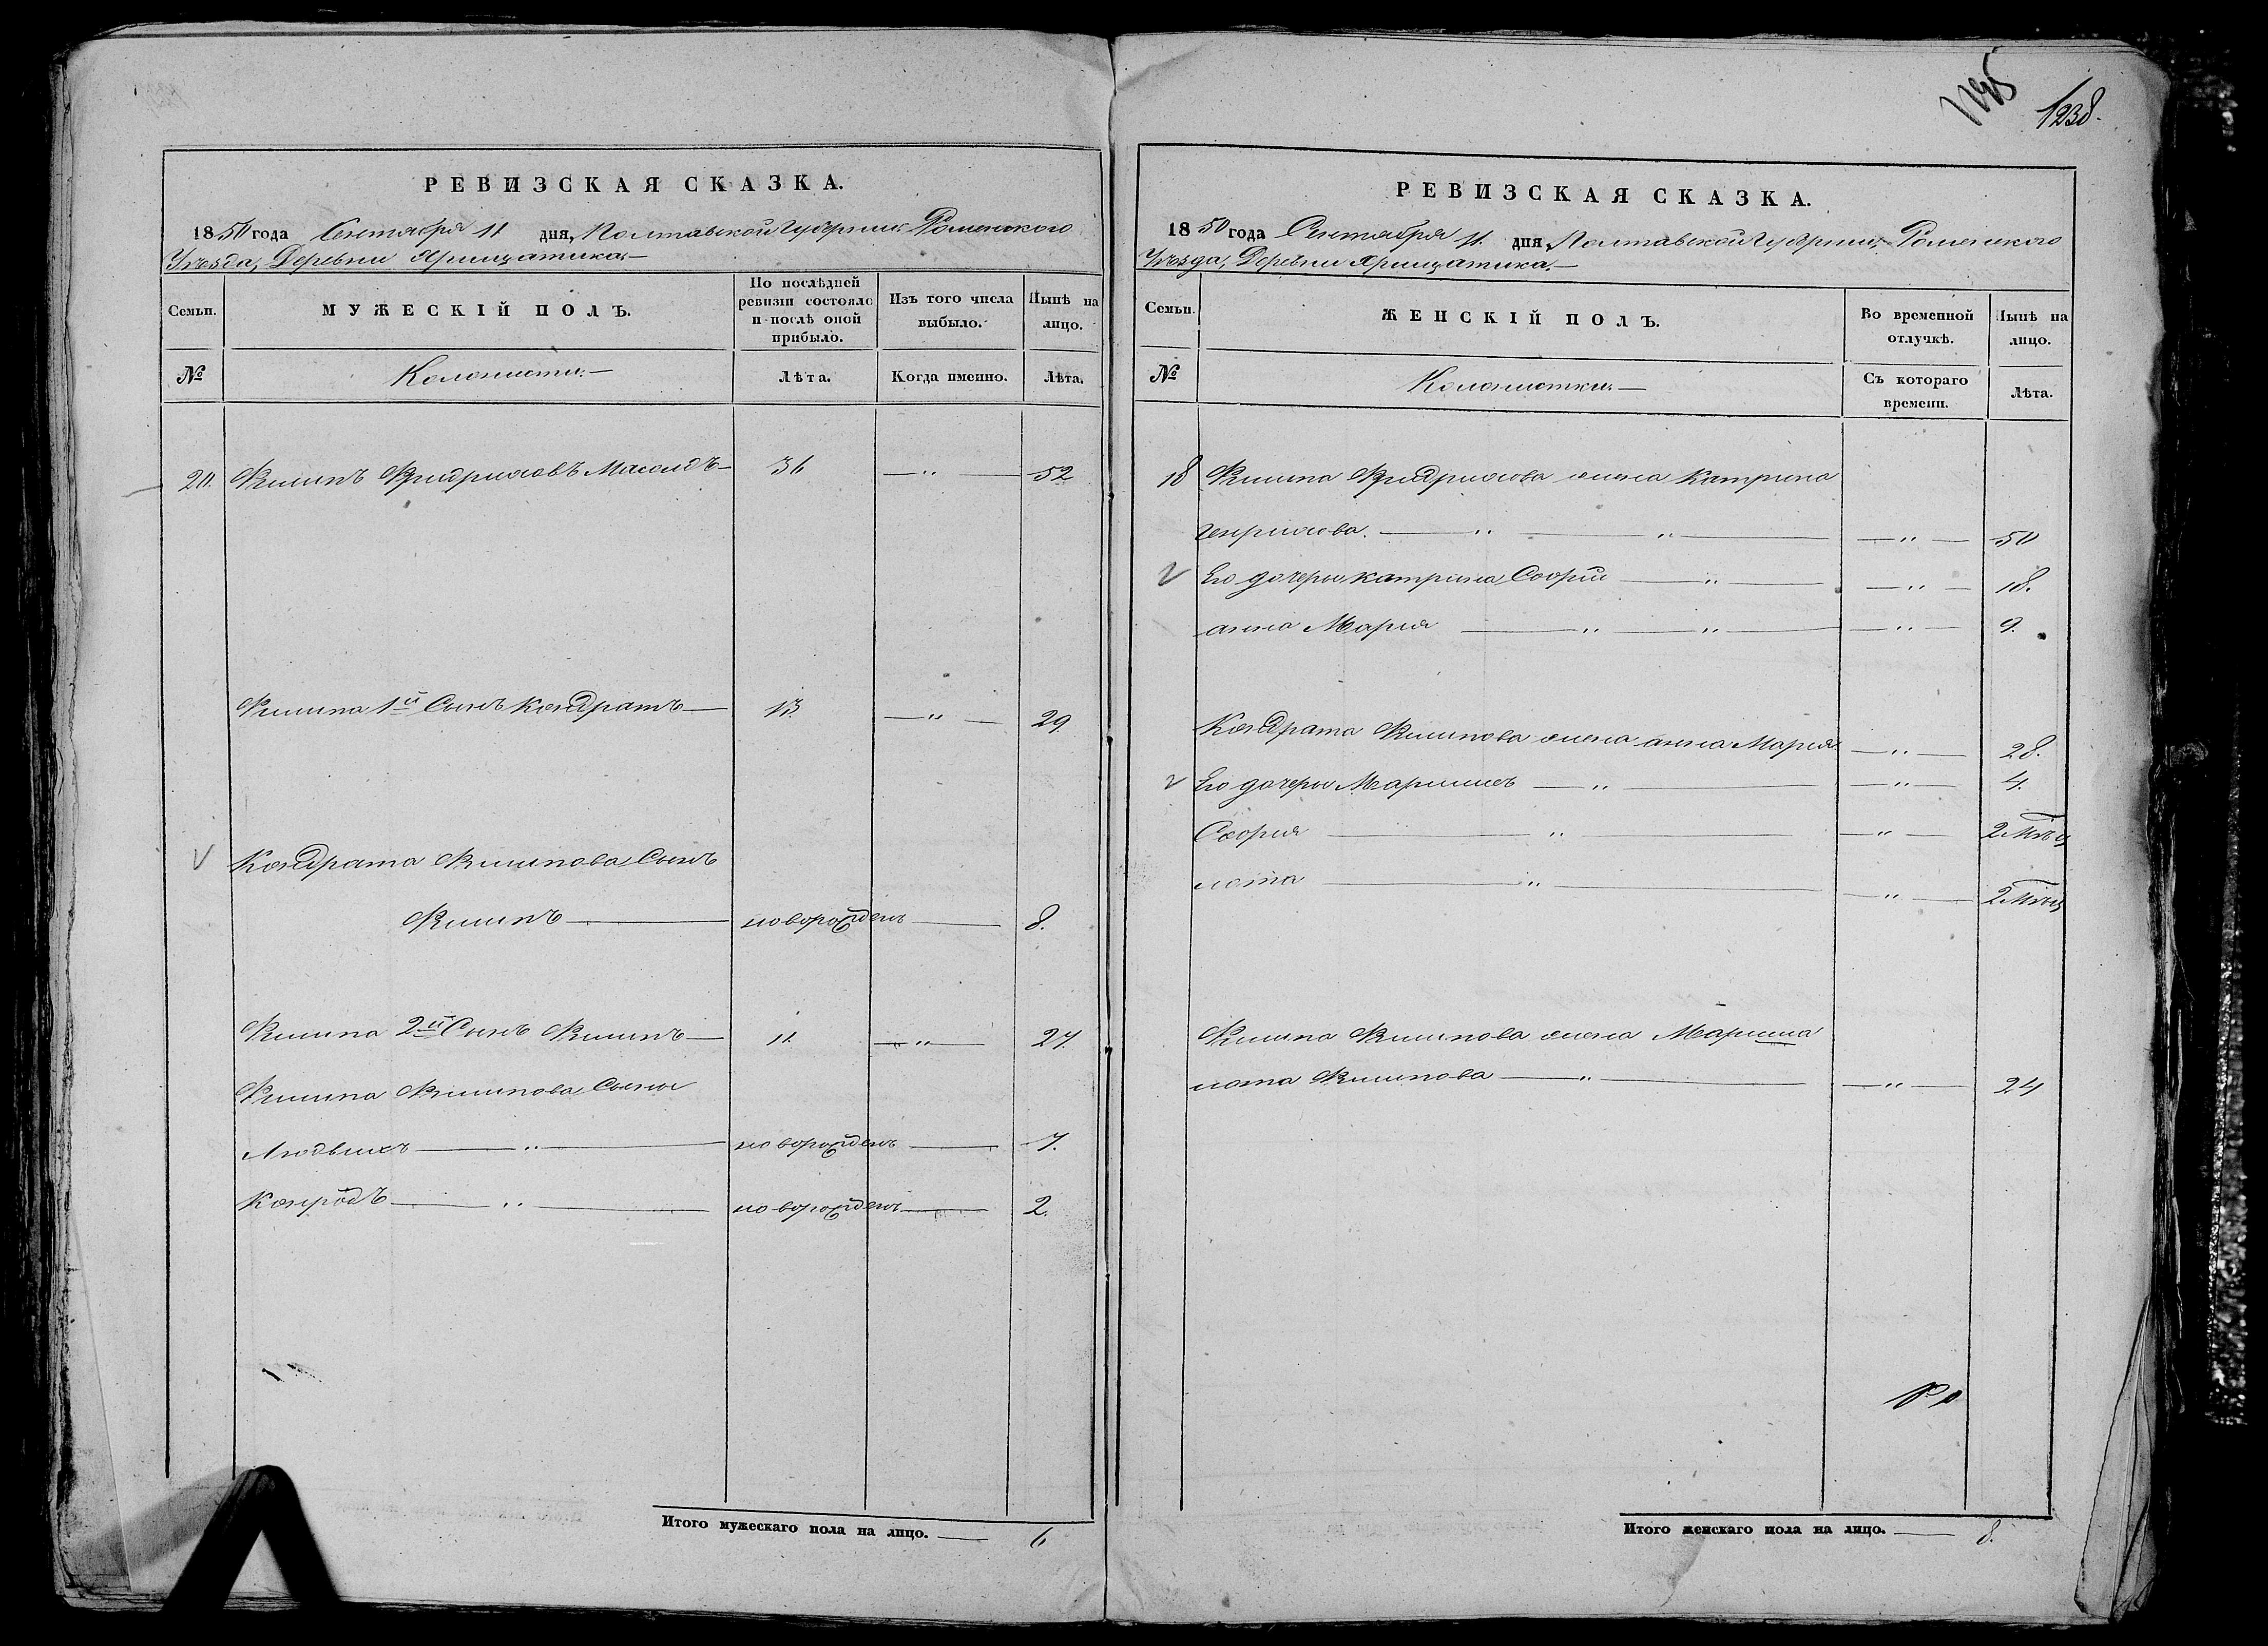 1238.
РЕВИЗСКАЯ СКАЗКА.
1850 года Сентября 11 дня, Полтавской Губернии Роменского
Уѣзда, Деревни
Семьи.
МУЖЕСКІЙ ПОЛЪ.
По послѣдней
ревизіи состояло
и послѣ оной
прибыло.
Изъ того числа
выбыло.
Нынѣ на
лицо.
№
Колонисты.
Лѣта.
Когда именно.
Лѣта.
20. Филипъ Фридриховъ 36 — " — 52
Филипа 1й Сынъ Кондратъ — 13. — " — 29.
Кондрата Филипова Сынъ
Филипъ — новорожденъ — 8.
Филипа 2й Сынъ Филипъ — 11 — " — 27.
Филипа Филипова Сыны
Людвихъ — " — новорожденъ — 7.
Конродъ — " — новорожденъ — 2.
Итого мужескаго пола на лицо. — 6
РЕВИЗСКАЯ СКАЗКА.
1850 года Сентября 11 дня, Полтавской Губерніи, Роменского
Уѣзда, Деревни
Семьи.
ЖЕНСКІЙ ПОЛЪ.
Во временной
отлучкѣ.
Нынѣ на
лицо.
№
Колонистки —
Съ котораго
времени.
Лѣта.
18 Филипа Фридрихова жена Катрина
Генрихова. — " — " — " — 50
Его дочеры катрина Софрія — " — " — 18.
анна Мария — " — " — " — 9.
Кондрата Филипова жена анна Мария — " — 28.
Его дочеры — " — " — 4.
Софрия — " — " — 2 Мѣц
лота — " — " — 2 Мѣц
Филипа Филипова жена
лота Филипова — " — " — 24
Итого женскаго пола на лицо. — 8.